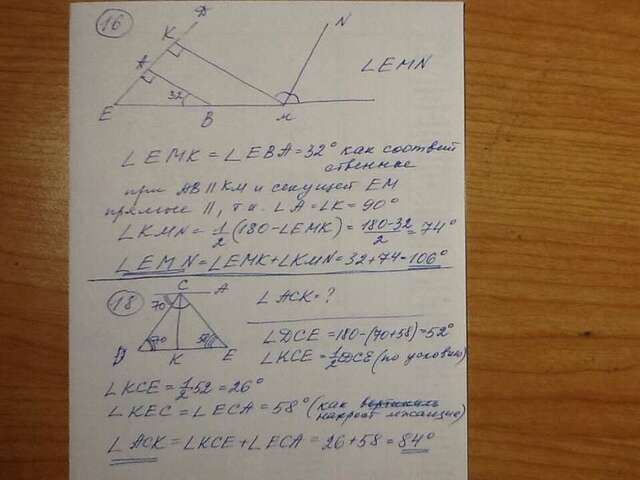 16
D
K
N
A
32
∠EMN
E
B
M
∠EMK = ∠EBA = 32° как соответ
ственные
при AB || KM и секущей EM
прямые ||, т.к. ∠A = ∠K = 90°
∠KMN = 1/2 (180 - ∠EMK) = 180-32/2 = 74°
∠EMN = ∠EMK + ∠KMN = 32 + 74 = 106°
18
C
A
70
∠ACK = ?
70
58
∠DCE = 180 - (70+58) = 52°
D
K
E
∠KCE = 1/2 DCE (по условию)
∠KCE = 1/2 · 52 = 26°
∠KEC = ∠ECA = 58° (как
накрест лежащие)
∠ACK = ∠KCE + ∠ECA = 26 + 58 = 84°